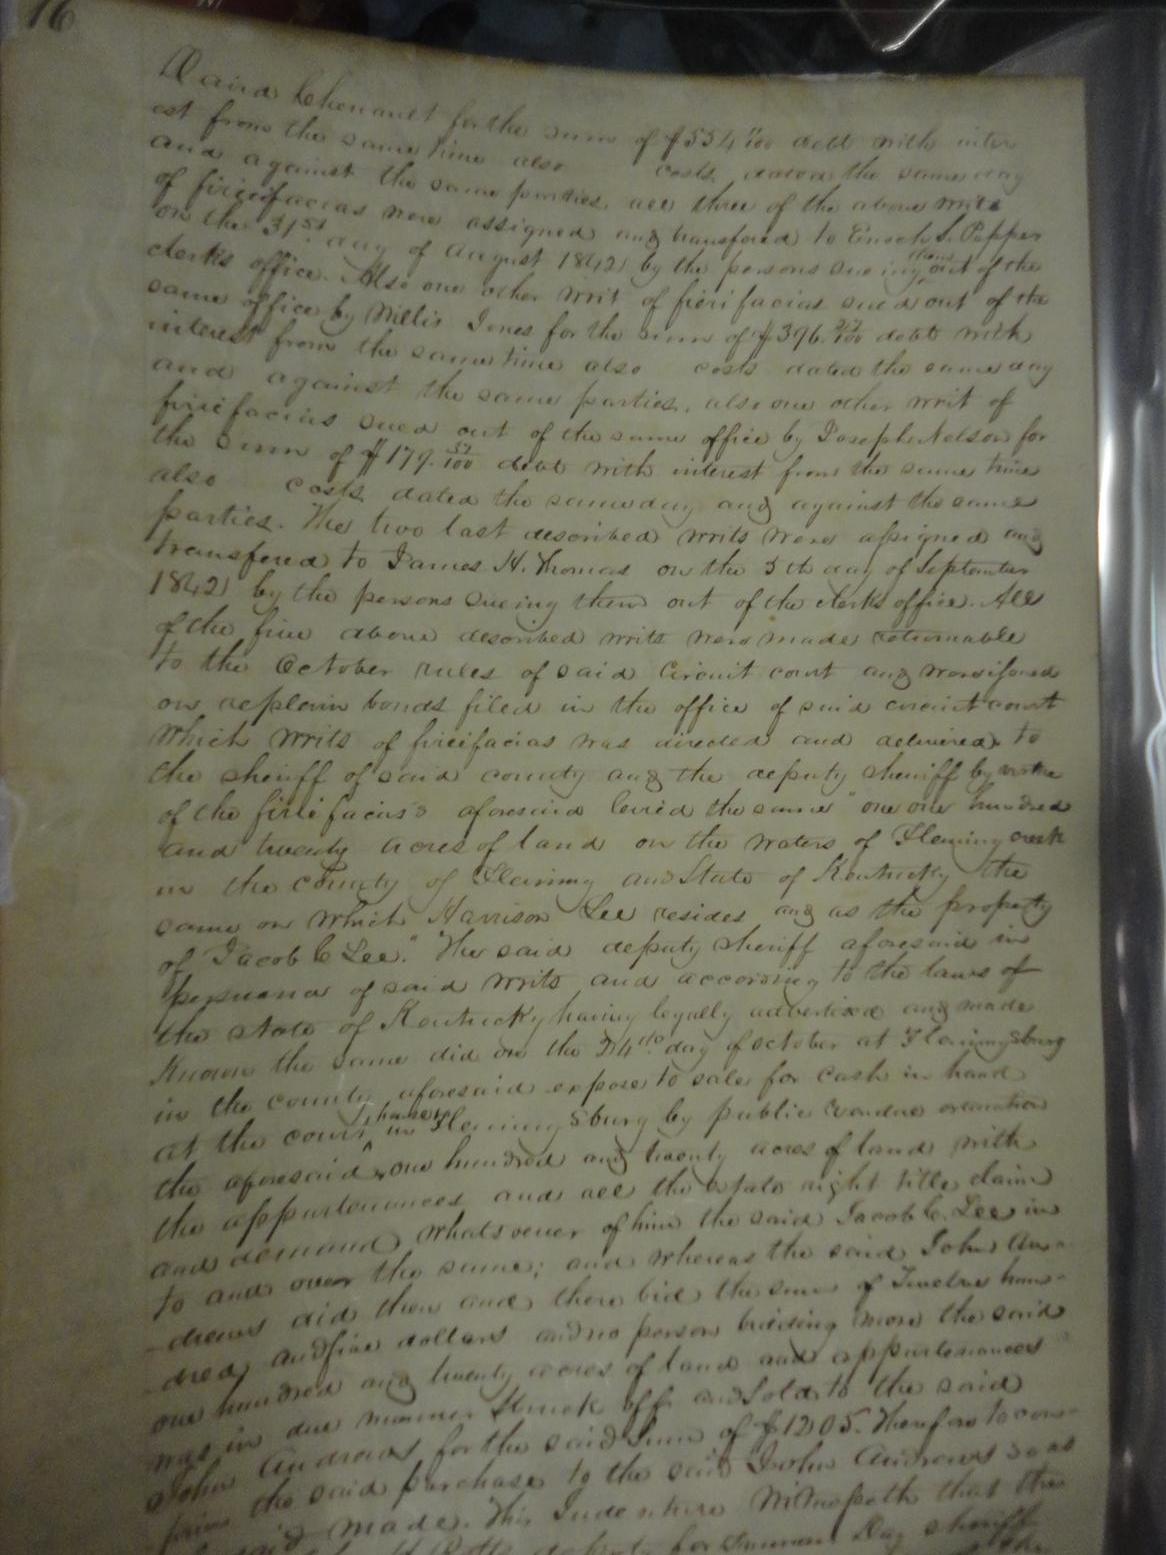 16
David Chenault for the sum of $554 /100 debt with inter
est from the same time also costs dated the same day
and against the same parties, all three of the above writs
of fierifacias were assigned and transfered to Enoch S. Pepper
on the 31st day of August 1842 by the persons sueing them out of the
clerks office. Also one other writ of fierifacias sued out of the
same office by Willis Jones for the sum of $396. /100 debt with
interest from the same time also costs dated the same day
and against the same parties, also one other writ of
fierifacias sued out of the same office by Joseph Nelson for
the sum of $179. 57/100 debt with interest from the same time
also costs dated the same day and against the same
parties. The two last described writs were assigned and
transfered to James H. Thomas on the 5th day of September
1842 by the persons sueing them out of the clerks office. All
of the five above described writs were made returnable
to the October rules of said Circuit court and were issued
on replevin bonds filed in the office of said circuit court
Which writs of fierifacias was directed and delivered to
the sheriff of said county and the deputy sheriff by virtue
of the fierifacias's aforesaid levied the same "one one hundred
and twenty acres of land on the waters of Fleming creek
in the county of Fleming and State of Kentucky the
same on which Harrison Lee resides and as the property
of Jacob C Lee." The said deputy sheriff aforesaid in
persuance of said writs and according to the laws of
the state of Kentucky having legally advertised and made
Known the same did on the 24th day of october at Flemingsburg
in the county aforesaid expose to sale for cash in hand
at the court house in Flemingsburg by public vendue or
the aforesaid one hundred and twenty acres of land with
the appurtenances and all the estate right title claim
and demand whatsoever of him the said Jacob C. Lee in
to and over the same; and whereas the said John An-
-drews did then and there bid the sum of Twelve hun-
-dred and five dollars and no person bidding more the said
one hundred and twenty acres of land and appurtenances
was in due manner Struck off and Sold to the said
John Andrews for the said Sum of $1205. Therefore to con-
firm the said purchase to the said John Andrews so as
made. This Indenture Witnesseth that the
deputy for Day sheriff